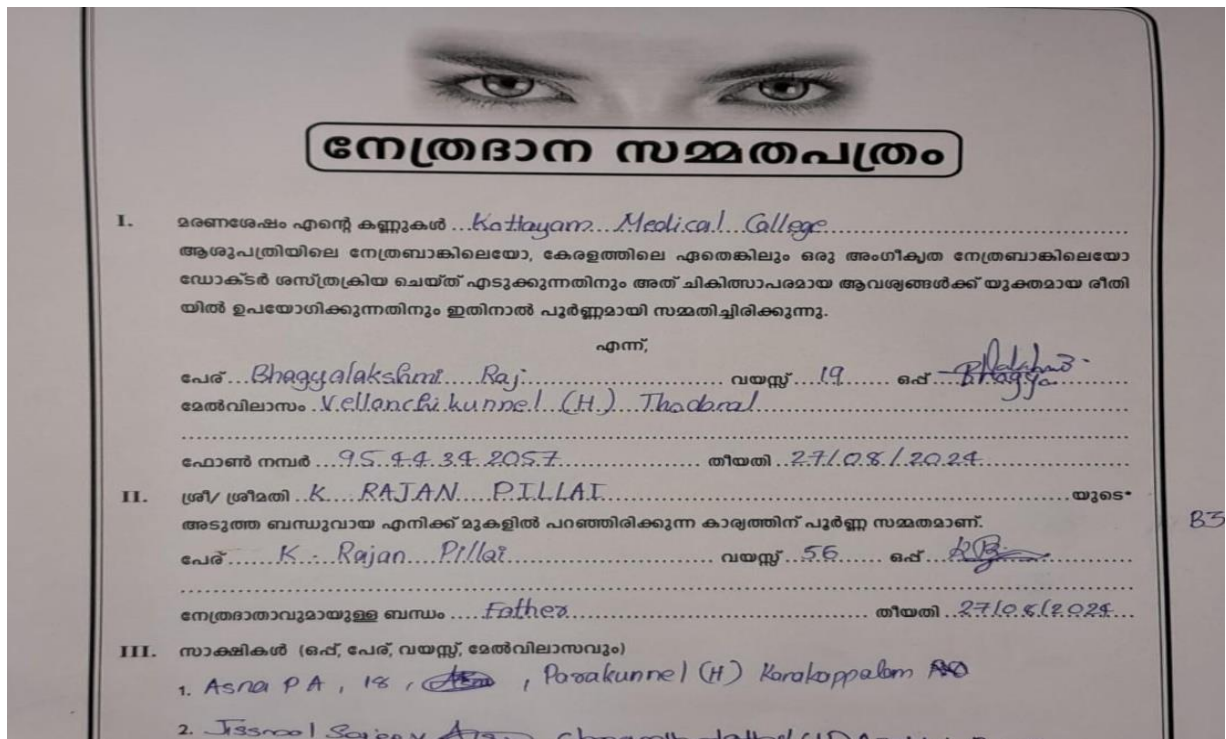 നേത്രദാന സമ്മതപത്രം
I. മരണശേഷം എന്റെ കണ്ണുകൾ ...Kottayam...Medical...College...
ആശുപത്രിയിലെ നേത്രബാങ്കിലെയോ, കേരളത്തിലെ ഏതെങ്കിലും ഒരു അംഗീകൃത നേത്രബാങ്കിലെയോ
ഡോക്ടർ ശസ്ത്രക്രിയ ചെയ്ത് എടുക്കുന്നതിനും അത് ചികിത്സാപരമായ ആവശ്യങ്ങൾക്ക് യുക്തമായ രീതി
യിൽ ഉപയോഗിക്കുന്നതിനും ഇതിനാൽ പൂർണ്ണമായി സമ്മതിച്ചിരിക്കുന്നു.
എന്ന്,
പേര് ...Bhagyalakshmi...Raj... വയസ്സ് ...19... ഒപ്പ് ...
മേൽവിലാസം ...Vellanchikunnel...(H)...
ഫോൺ നമ്പർ ...95.44.34.2057... തീയതി ...27/08/2024...
II. ശ്രീ/ ശ്രീമതി ...K...RAJAN...PILLAI... യുടെ*
അടുത്ത ബന്ധുവായ എനിക്ക് മുകളിൽ പറഞ്ഞിരിക്കുന്ന കാര്യത്തിന് പൂർണ്ണ സമ്മതമാണ്.
B3
പേര് ...K...Rajan...Pillai... വയസ്സ് ...56... ഒപ്പ് ...
നേത്രദാതാവുമായുള്ള ബന്ധം ...Father... തീയതി ...27/08/2024...
III. സാക്ഷികൾ (ഒപ്പ്, പേര്, വയസ്സ്, മേൽവിലാസവും)
1. Asna P A, 18, , Parakunnel (H) Karakoppalam
2.